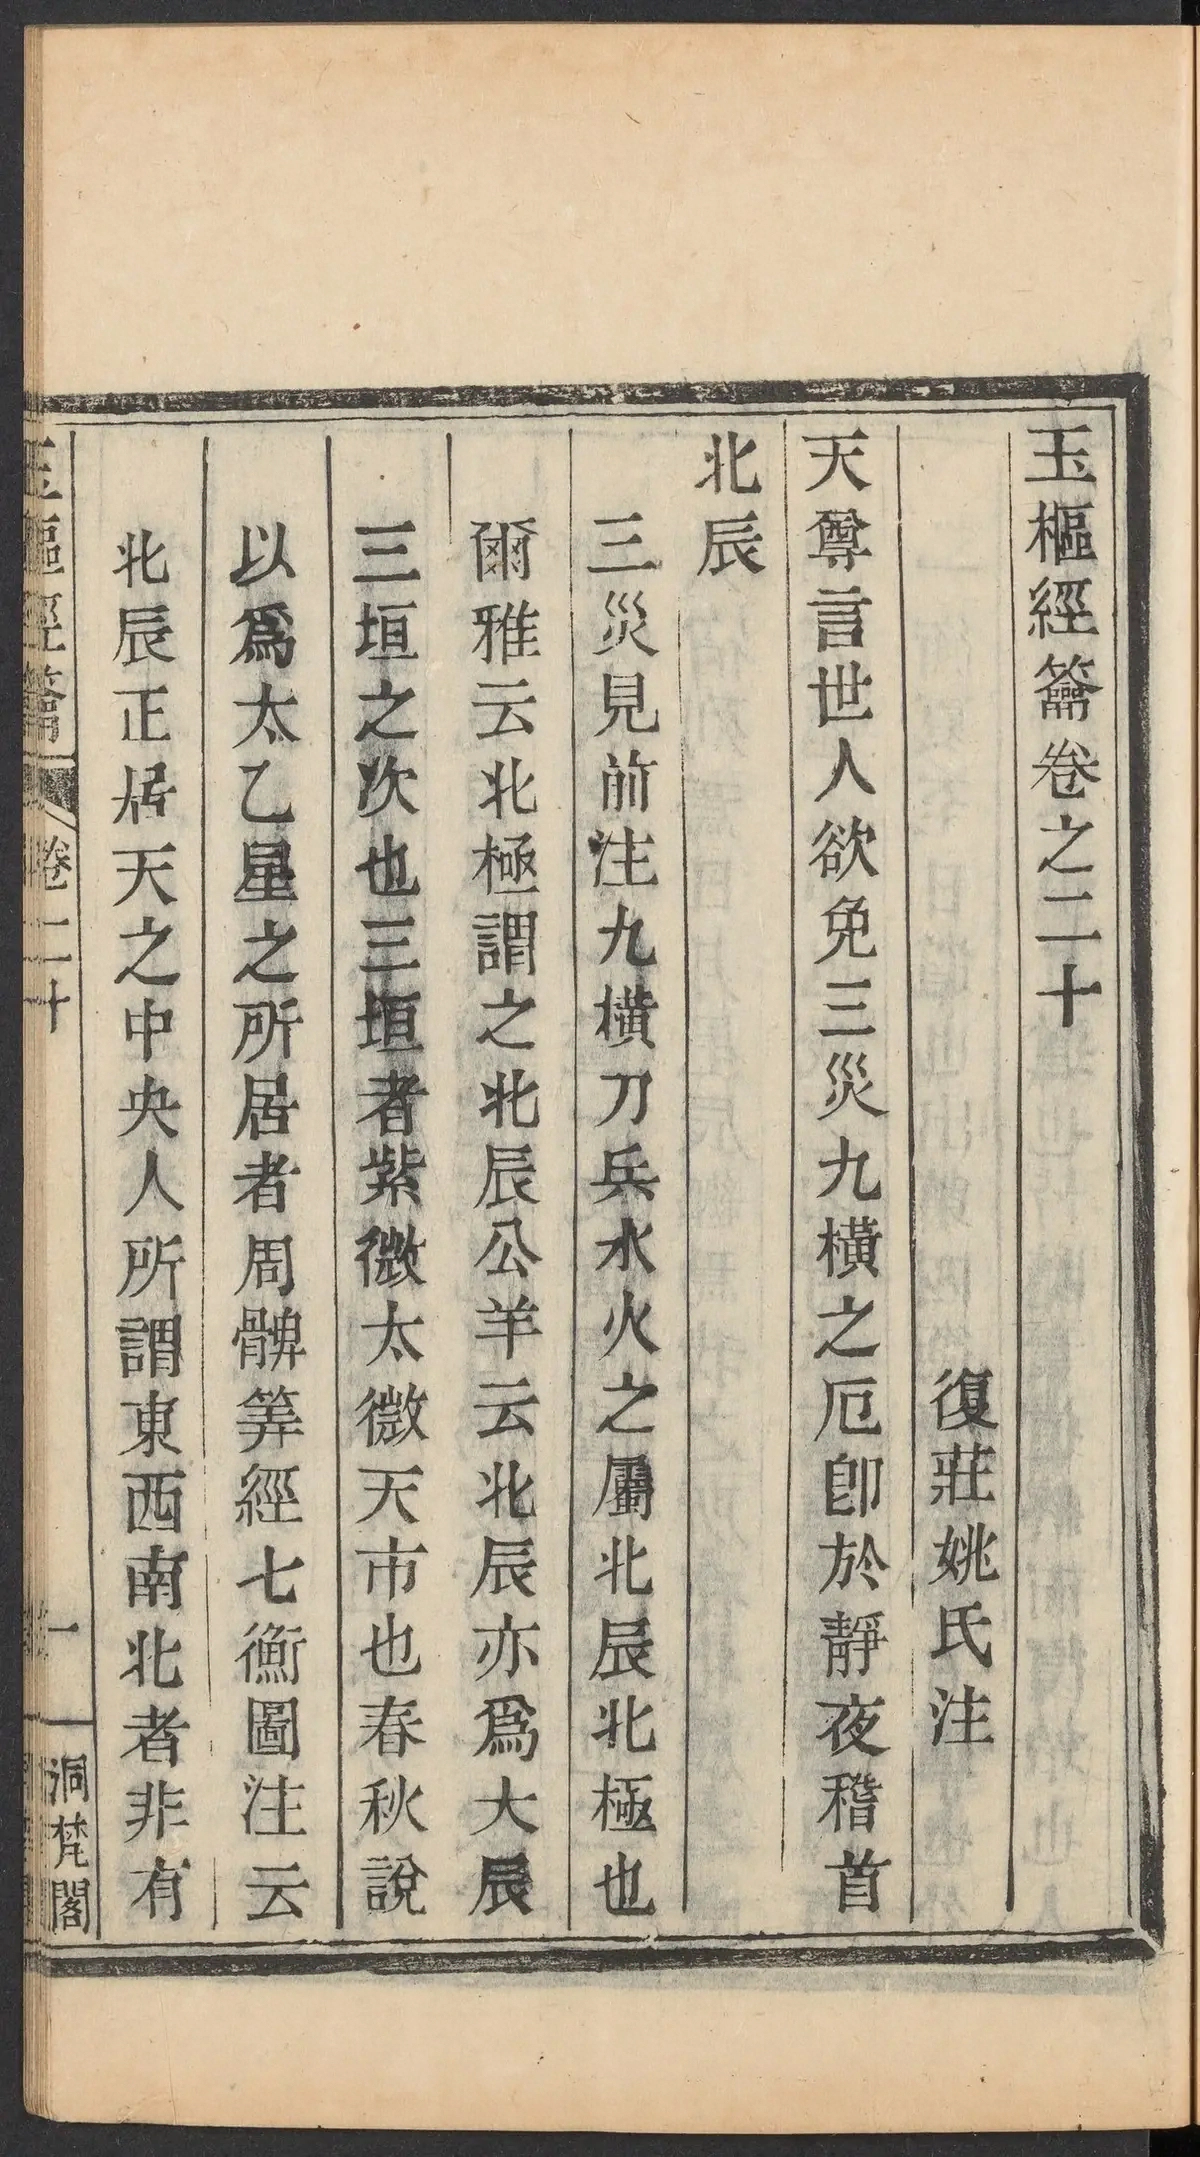 玉樞經籥卷之二十
復莊姚氏注
天尊言世人欲免三災九橫之厄卽於靜夜稽首
北辰
三災見前注九橫刀兵水火之屬北辰北極也
爾雅云北極謂之北辰公羊云北辰亦爲大辰
三垣之次也三垣者紫微太微天市也春秋說
以爲太乙星之所居者周髀筭經七衡圖注云
北辰正居天之中央人所謂東西南北者非有
玉樞經籥
卷二十
一
洞梵閣